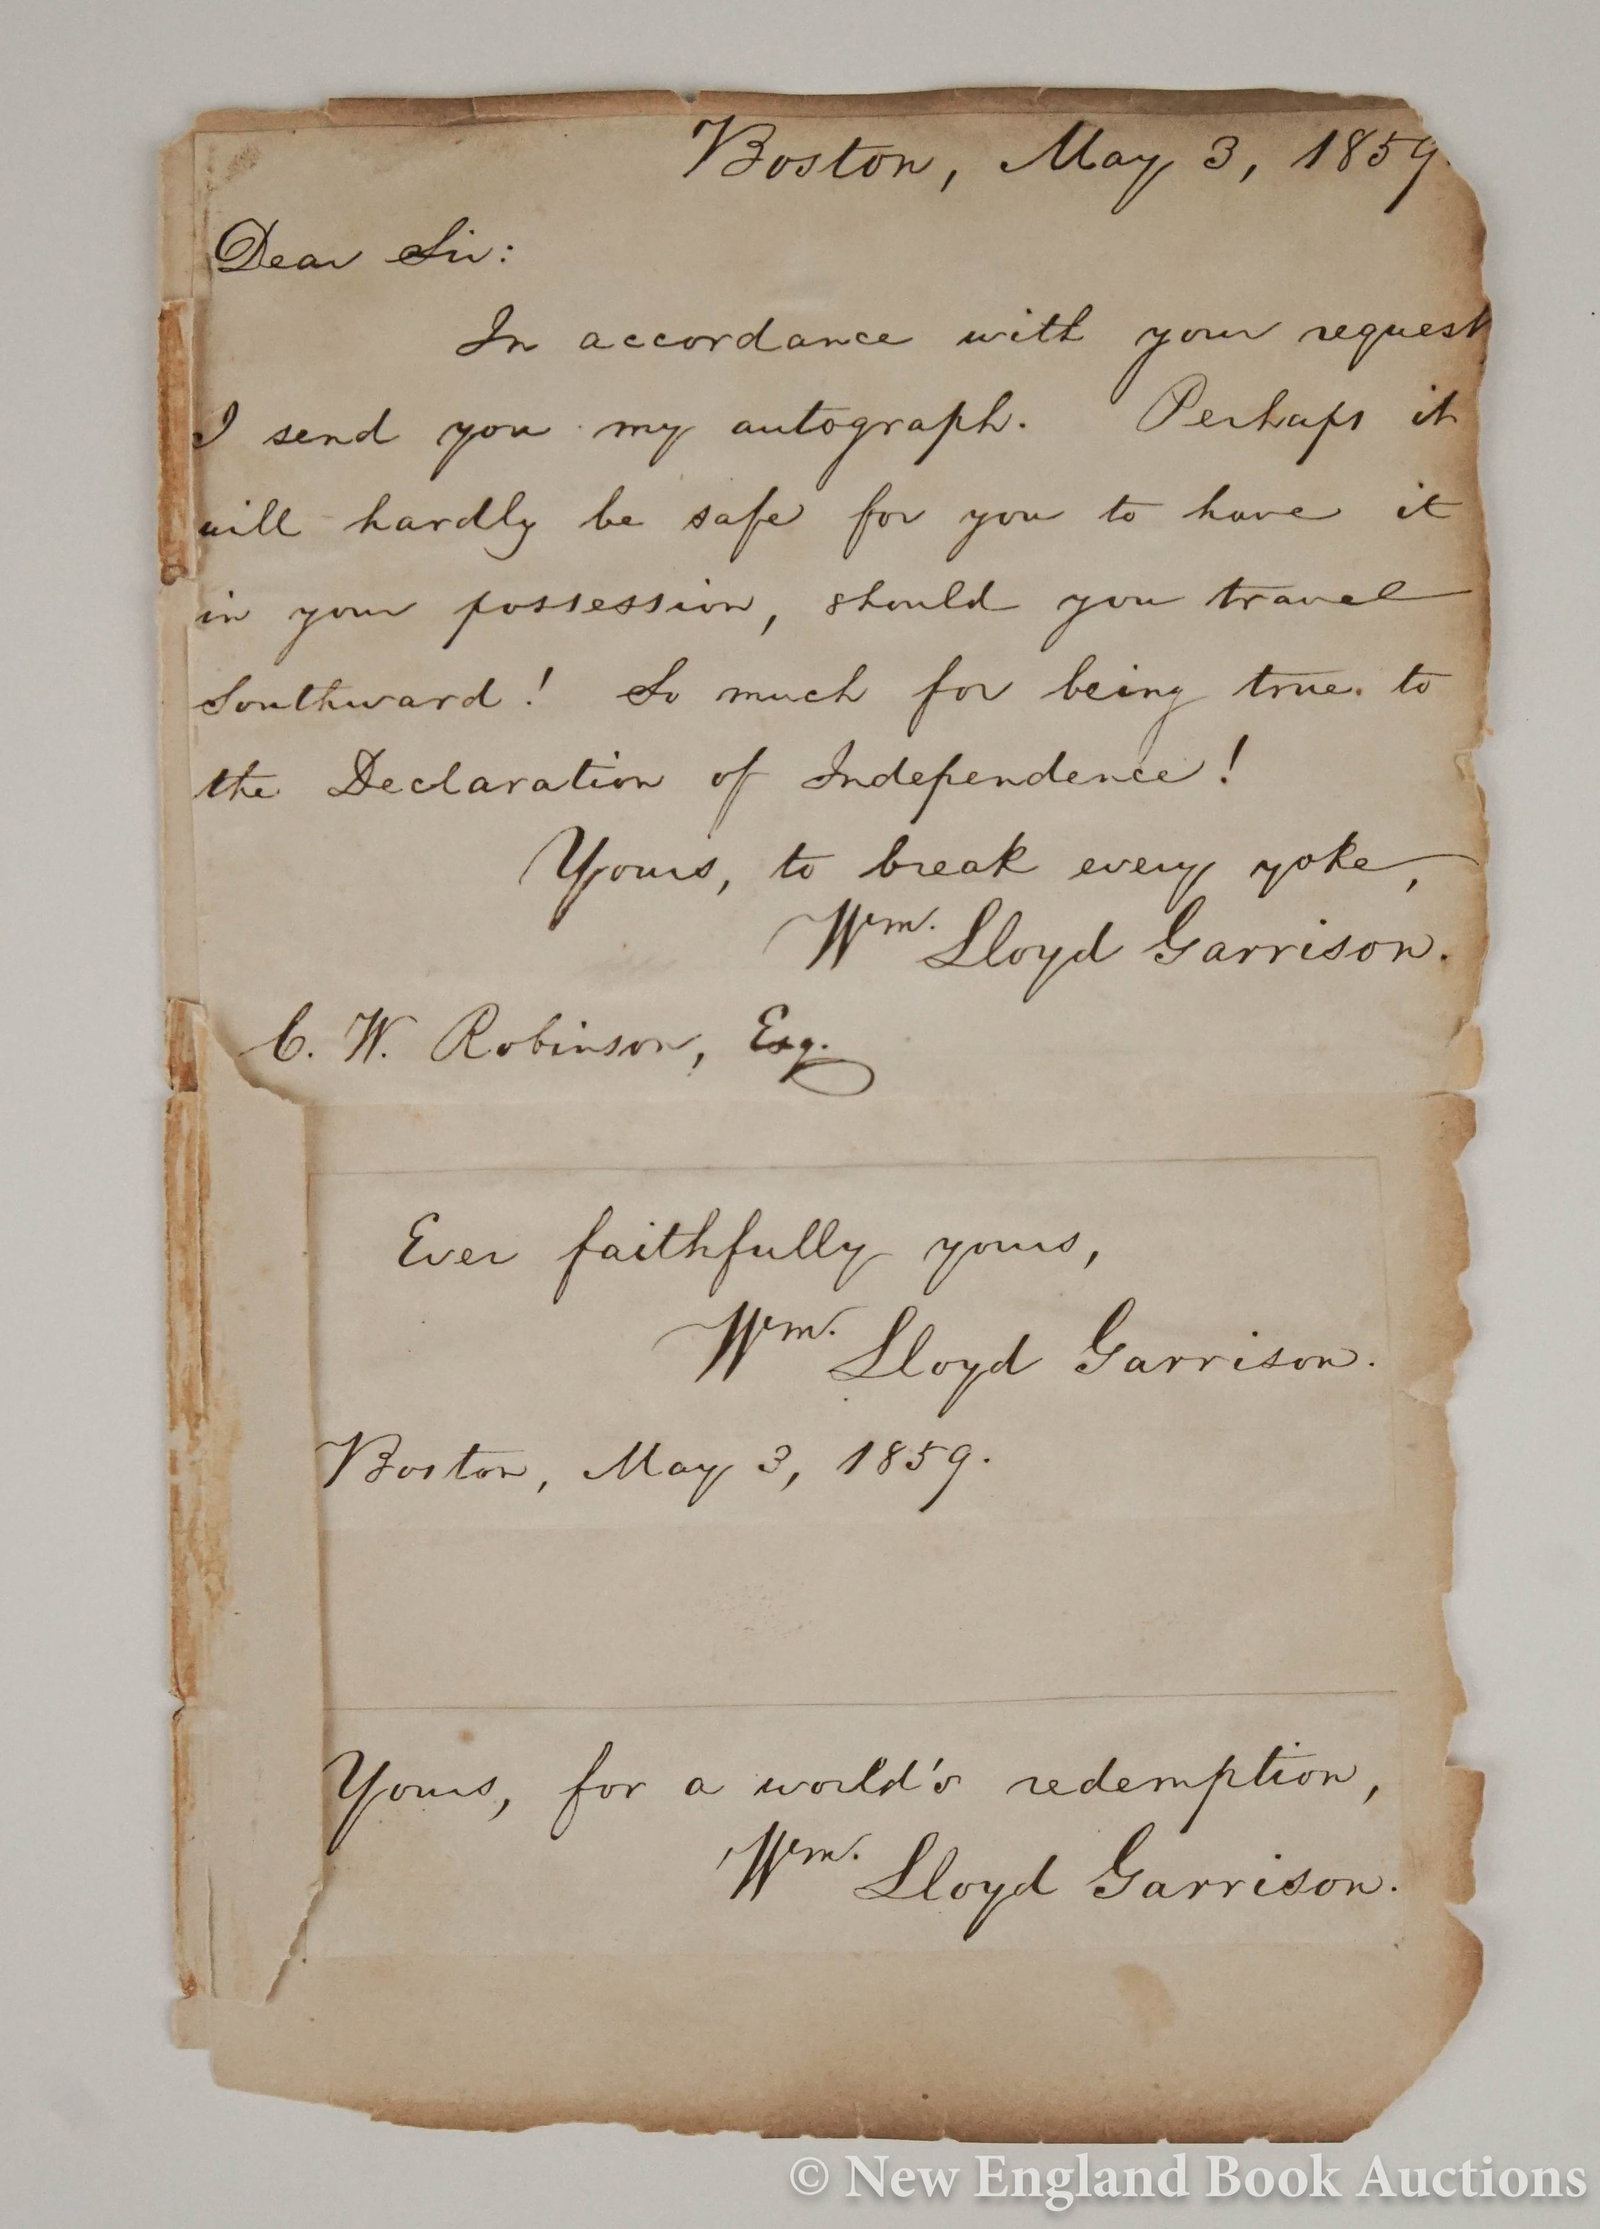 Boston, May 3, 1859.
Dear Sir:
In accordance with your request
I send you my autograph. Perhaps it
will hardly be safe for you to have it
in your possession, should you travel
Southward! So much for being true to
the Declaration of Independence!
Yours, to break every yoke,
Wm. Lloyd Garrison.
C. W. Robinson, Esq.
Ever faithfully yours,
Wm. Lloyd Garrison.
Boston, May 3, 1859.
Yours, for a world's redemption,
Wm. Lloyd Garrison.
© New England Book Auctions